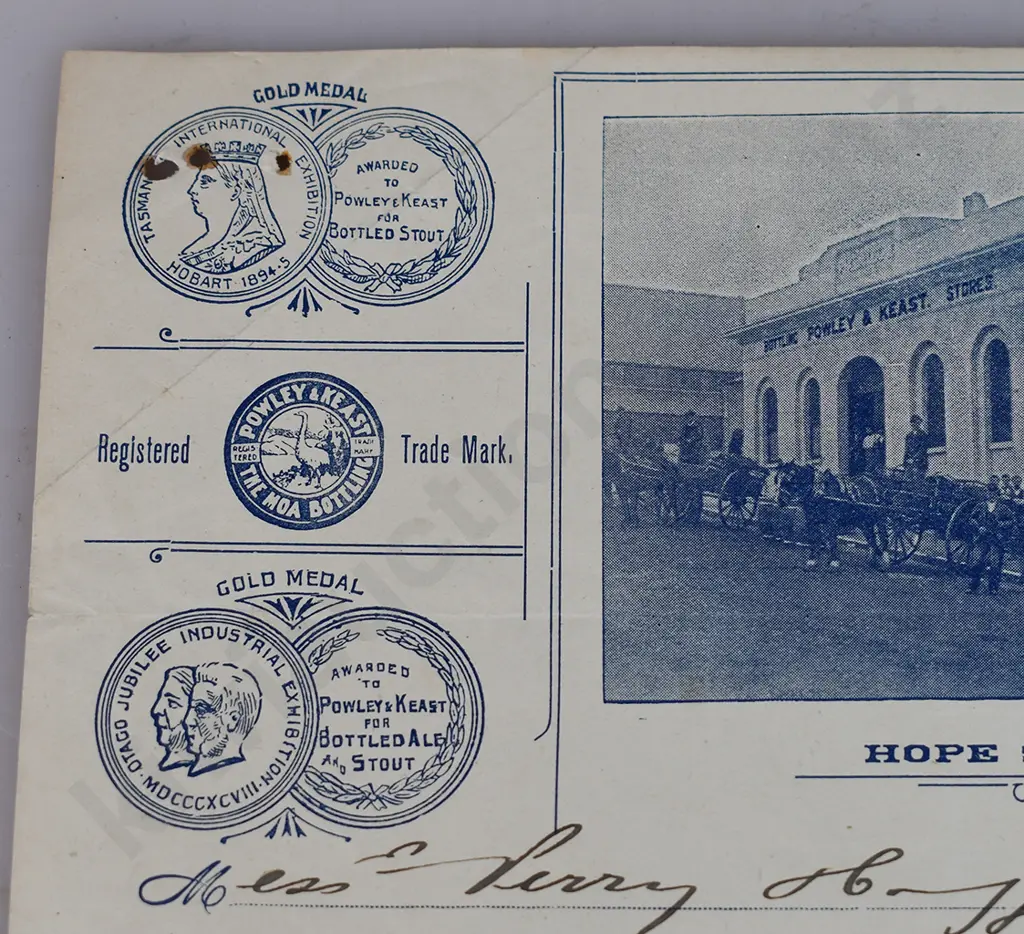 GOLD MEDAL
TASMAN INTERNATIONAL EXHIBITION
HOBART 1894-5
AWARDED
TO
POWLEY & KEAST
FOR
BOTTLED STOUT
Registered
POWLEY & KEAST
REGIS
TERED
TRADE
MARK
THE MOA BOTTLING
Trade Mark.
GOLD MEDAL
OTAGO JUBILEE INDUSTRIAL EXHIBITION
MDCCCXCVIII
AWARDED
TO
POWLEY & KEAST
FOR
BOTTLED ALE
AND STOUT
BOTTLING POWLEY & KEAST. STORES
HOPE
Mess Perry